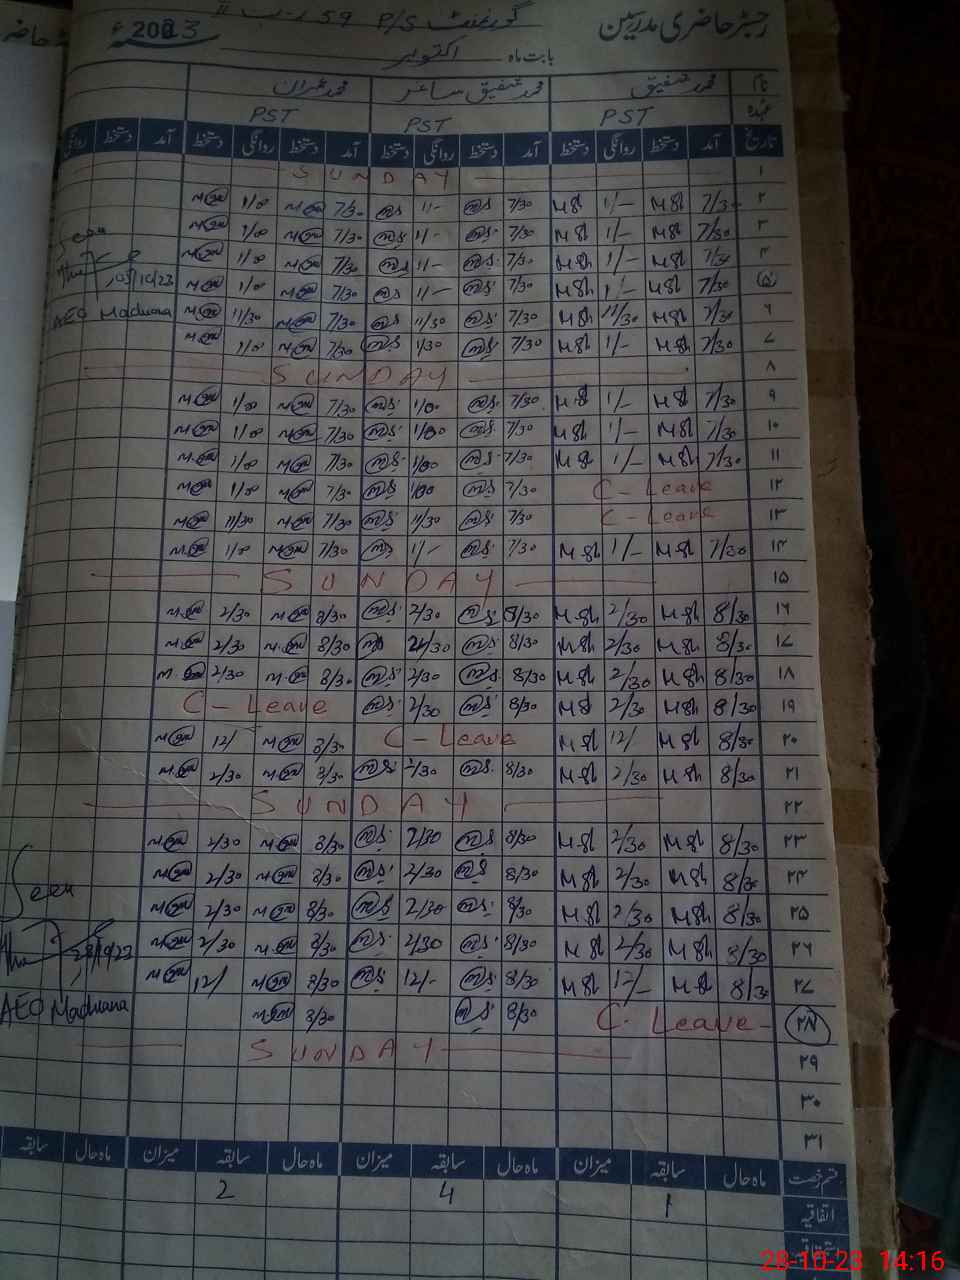 رجسٹر حاضری مدرسین گورنمنٹ P/S 59 ر-ب II 2023ء
بابت ماہ اکتوبر
نام محمد شفیق محمد شفیق ساغر محمد عمران
عہدہ PST PST PST
تاریخ آمد دستخط روانگی دستخط آمد دستخط روانگی دستخط آمد دستخط روانگی دستخط آمد دستخط روانگی
۱ SUNDAY
۲ 7/30 M8h 1/- M8h 7/30 1/- 7/30 1/00
۳ 7/30 M8h 1/- M8h 7/30 1/- 7/30 1/00
۴ 7/30 M8h 1/- M8h 7/30 1/- 7/30 1/00
۵ 7/30 M8h 1/- M8h 7/30 1/- 7/30 1/00
۶ 7/30 M8h 11/30 M8h 7/30 11/30 7/30 11/30
۷ 7/30 M8h 1/- M8h 7/30 1/30 7/30 1/00
۸ SUNDAY
۹ 7/30 M8h 1/- M8h 7/30 1/00 7/30 1/00
۱۰ 7/30 M8h 1/- M8h 7/30 1/00 7/30 1/00
۱۱ 7/30 M8h 1/- M8h 7/30 1/00 7/30 1/00
۱۲ C-Leave 7/30 1/00 7/30 1/00
۱۳ C-Leave 7/30 11/30 7/30 11/30
۱۴ 7/30 M8h 1/- M8h 7/30 1/- 7/30 1/00
۱۵ SUNDAY
۱۶ 8/30 M8h 2/30 M8h 8/30 2/30 8/30 2/30
۱۷ 8/30 M8h 2/30 M8h 8/30 2/30 8/30 2/30
۱۸ 8/30 M8h 2/30 M8h 8/30 2/30 8/30 2/30
۱۹ 8/30 M8h 2/30 M8h 8/30 2/30 C-Leave
۲۰ 8/30 M8h 12/ M8h C-Leave 8/30 12/
۲۱ 8/30 M8h 2/30 M8h 8/30 2/30 8/30 2/30
۲۲ SUNDAY
۲۳ 8/30 M8h 2/30 M8h 8/30 2/30 8/30 2/30
۲۴ 8/30 M8h 2/30 M8h 8/30 2/30 8/30 2/30
۲۵ 8/30 M8h 2/30 M8h 8/30 2/30 8/30 2/30
۲۶ 8/30 M8h 2/30 M8h 8/30 2/30 8/30 2/30
۲۷ 8/30 M8h 12/- M8h 8/30 12/- 8/30 12/
۲۸ C-Leave 8/30 8/30
۲۹ SUNDAY
۳۰
۳۱
Seen
05/10/23
AEO Maduana
Seen
28/10/23
AEO Maduana
قسم رخصت ماہ حال سابقہ میزان ماہ حال سابقہ میزان ماہ حال سابقہ میزان ماہ حال سابقہ
اتفاقیہ 1 4 2
28-10-23 14:16